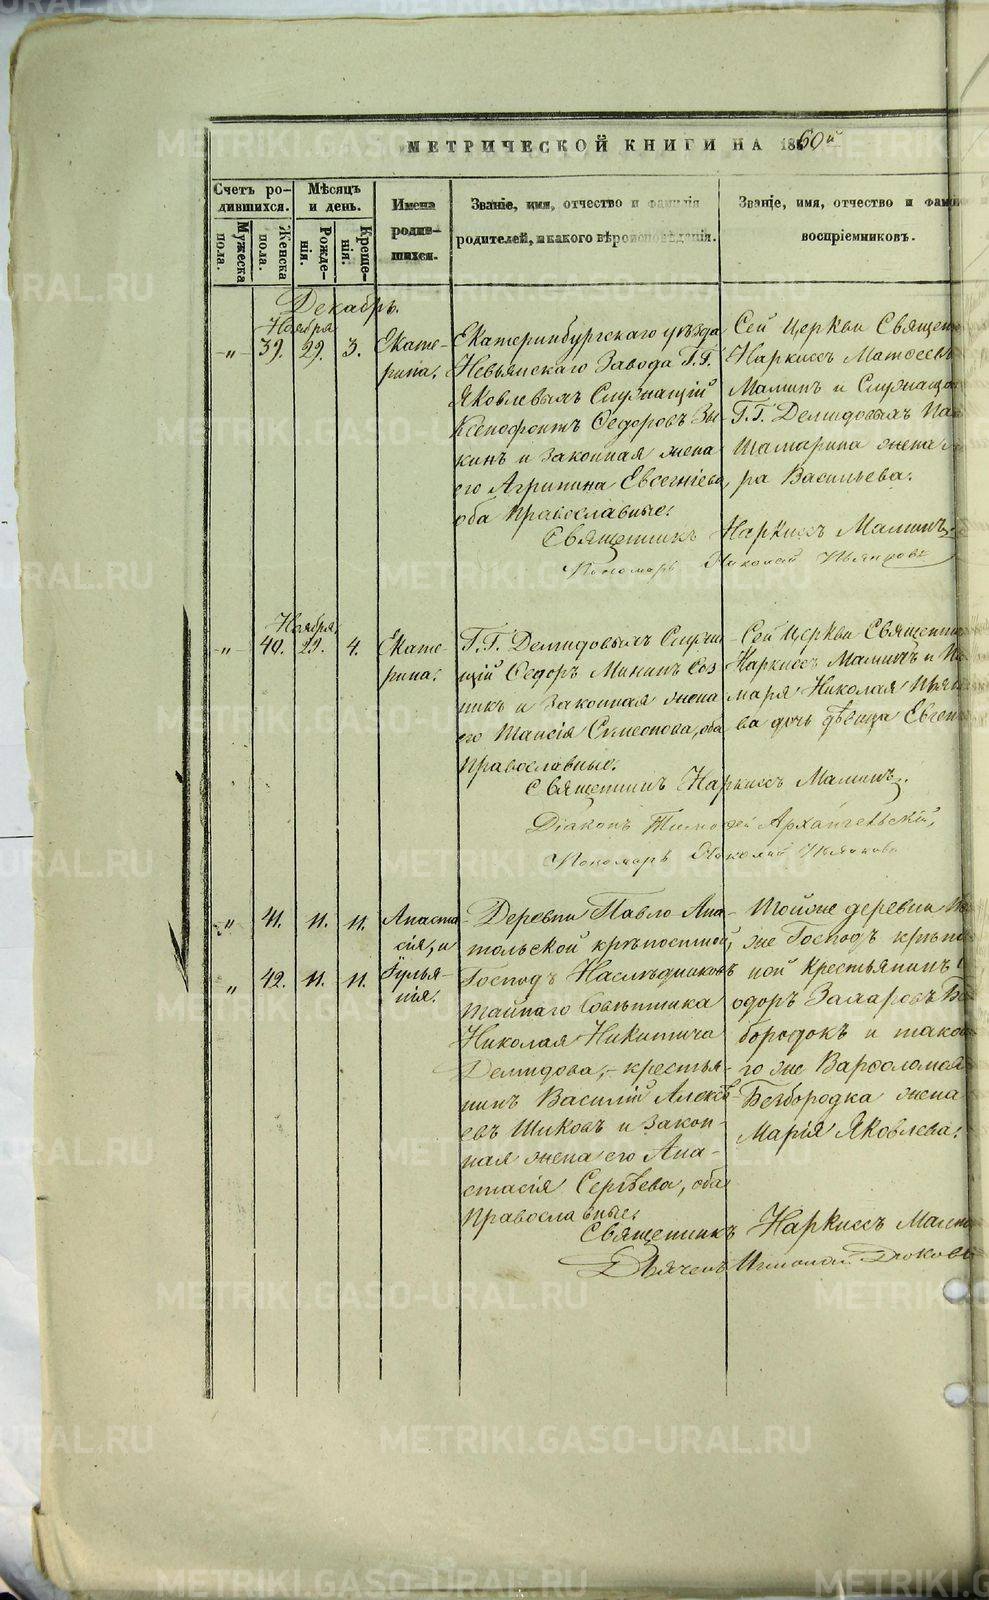 МЕТРИЧЕСКОЙ КНИГИ НА 1860й
Счетъ родившихся.
Мѣсяцъ и день.
Имена родившихся.
Званіе, имя, отчество и фамилія родителей, и какого вѣроисповѣданія.
Званіе, имя, отчество и фами
воспріемниковъ.
Мужеска пола.
Женска пола.
Рожденія.
Крещенія.
Декабрь.
Ноября
„ 39. 29. 3. Екате-
рина.
Екатеринбургскаго уѣзда
Невьянскаго Завода Г.Г.
Яковлевыхъ Служащій
Ксенофонтъ Ѳедоровъ Зы-
кинъ и законная жена
его Агрипина Евсегніева,
оба Православные.
Сей Церкви Священ
Наркиссъ Матѳеевъ
Маминъ и Служащаго
Г.Г. Демидовыхъ
Шамарина жена
ра Васильева.
Священникъ Наркиссъ Маминъ
Пономарь Николай
Ноября
„ 40. 29. 4. Екате-
рина.
Г.Г. Демидовыхъ Служа-
щій Ѳедоръ Мининъ Соз
никъ и законная жена
его Таисія Симеонова, оба
Православные.
Сей Церкви Священни
Наркиссъ Маминъ и По
маря Николая
ва дочь дѣвица Евген
Священникъ Наркиссъ Маминъ.
Діаконъ Тимофей Архангельскій,
Пономарь Николай
„ 41. 11. 11. Анаста
сія, и
„ 42. 11. 11. Іулья-
нія.
Деревни Павло Ана-
тольской крѣпостной,
Господъ Наслѣдниковъ
Тайнаго Совѣтника
Николая Никитича
Демидова, – крестья-
нинъ Василій Алексѣ-
евъ Шиковъ и Закон-
ная жена его Ана-
стасія Сергѣева, оба
Православные.
Тойже деревни
же Господъ крѣпо
ной Крестьянинъ Ѳ
одоръ Захаровъ Без
бородокъ и тако
го же Варѳоломея
Безбородка жена
Марія Яковлева.
Священникъ Наркиссъ Мами